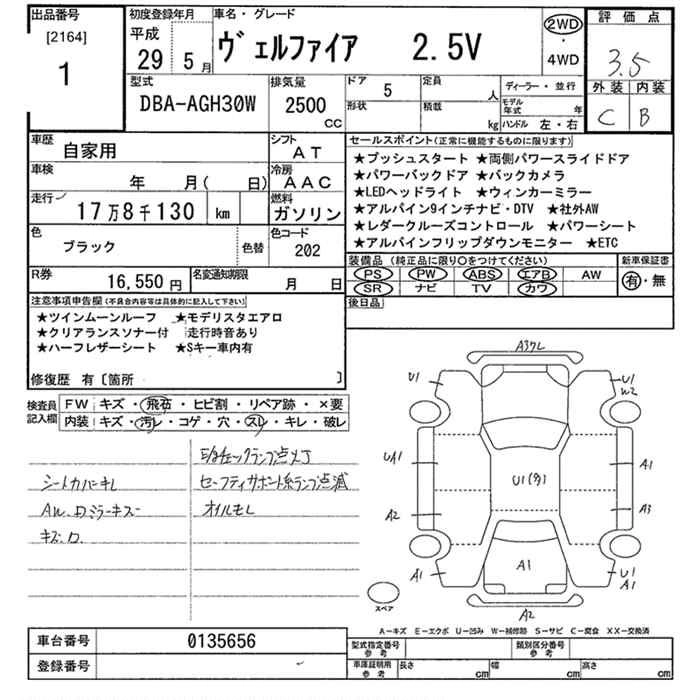 出品番号 初度登録年月 車名・グレード 評価点
[2164] 平成 ヴェルファイア 2.5V 2WD
1 29 5月 ・ 3.5
4WD
型式 排気量 ドア 5 定員 人 ディーラー・並行 外装 内装
DBA-AGH30W 2500 CC 形状 積載 kg モデル年式 年 C B
ハンドル 左・右
車歴 自家用 シフト AT セールスポイント(正常に機能するものに限ります)
★プッシュスタート ★両側パワースライドドア
車検 年 月( 日) 冷房 AAC ★パワーバックドア ★バックカメラ
★LEDヘッドライト ★ウィンカーミラー
走行 17万8千130 km 燃料 ガソリン ★アルパイン9インチナビ・DTV ★社外AW
★レダークルーズコントロール ★パワーシート
色 ブラック 色替 色コード 202 ★アルパインフリップダウンモニター ★ETC
R券 16,550円 名変通知期限 月 日 装備品 (純正品に限り○をつけてください) 新車保証書
PS PW ABS エアB AW 有・無
SR ナビ TV カワ
注意事項申告欄(不具合内容等は具体的に記入して下さい) 後日品
★ツインムーンルーフ ★モデリスタエアロ
★クリアランスソナー付 走行時音あり
★ハーフレザーシート ★Sキー車内有
修復歴 有〔箇所 〕
検査員記入欄 FW キズ・飛石・ヒビ割・リペア跡・×要
内装 キズ・汚レ・コゲ・穴・スレ・キレ・破レ
チェックランプ点灯
シートカバーキレ セーフティサポート系ランプ点滅
AW.ドミラーキズ オイルモレ
キズ.
A3クレ
U1 U1
W2
UA1 U1(多) A1
A2 A3
A1 A1 U1
A1
スペア A2
A-キズ E-エクボ U-凹み W-補修跡 S-サビ C-腐食 XX-交換済
車台番号 0135656 型式指定番号 参考 類別区分番号 参考
登録番号 車庫証明用 参考 長さ cm 幅 cm 高さ cm